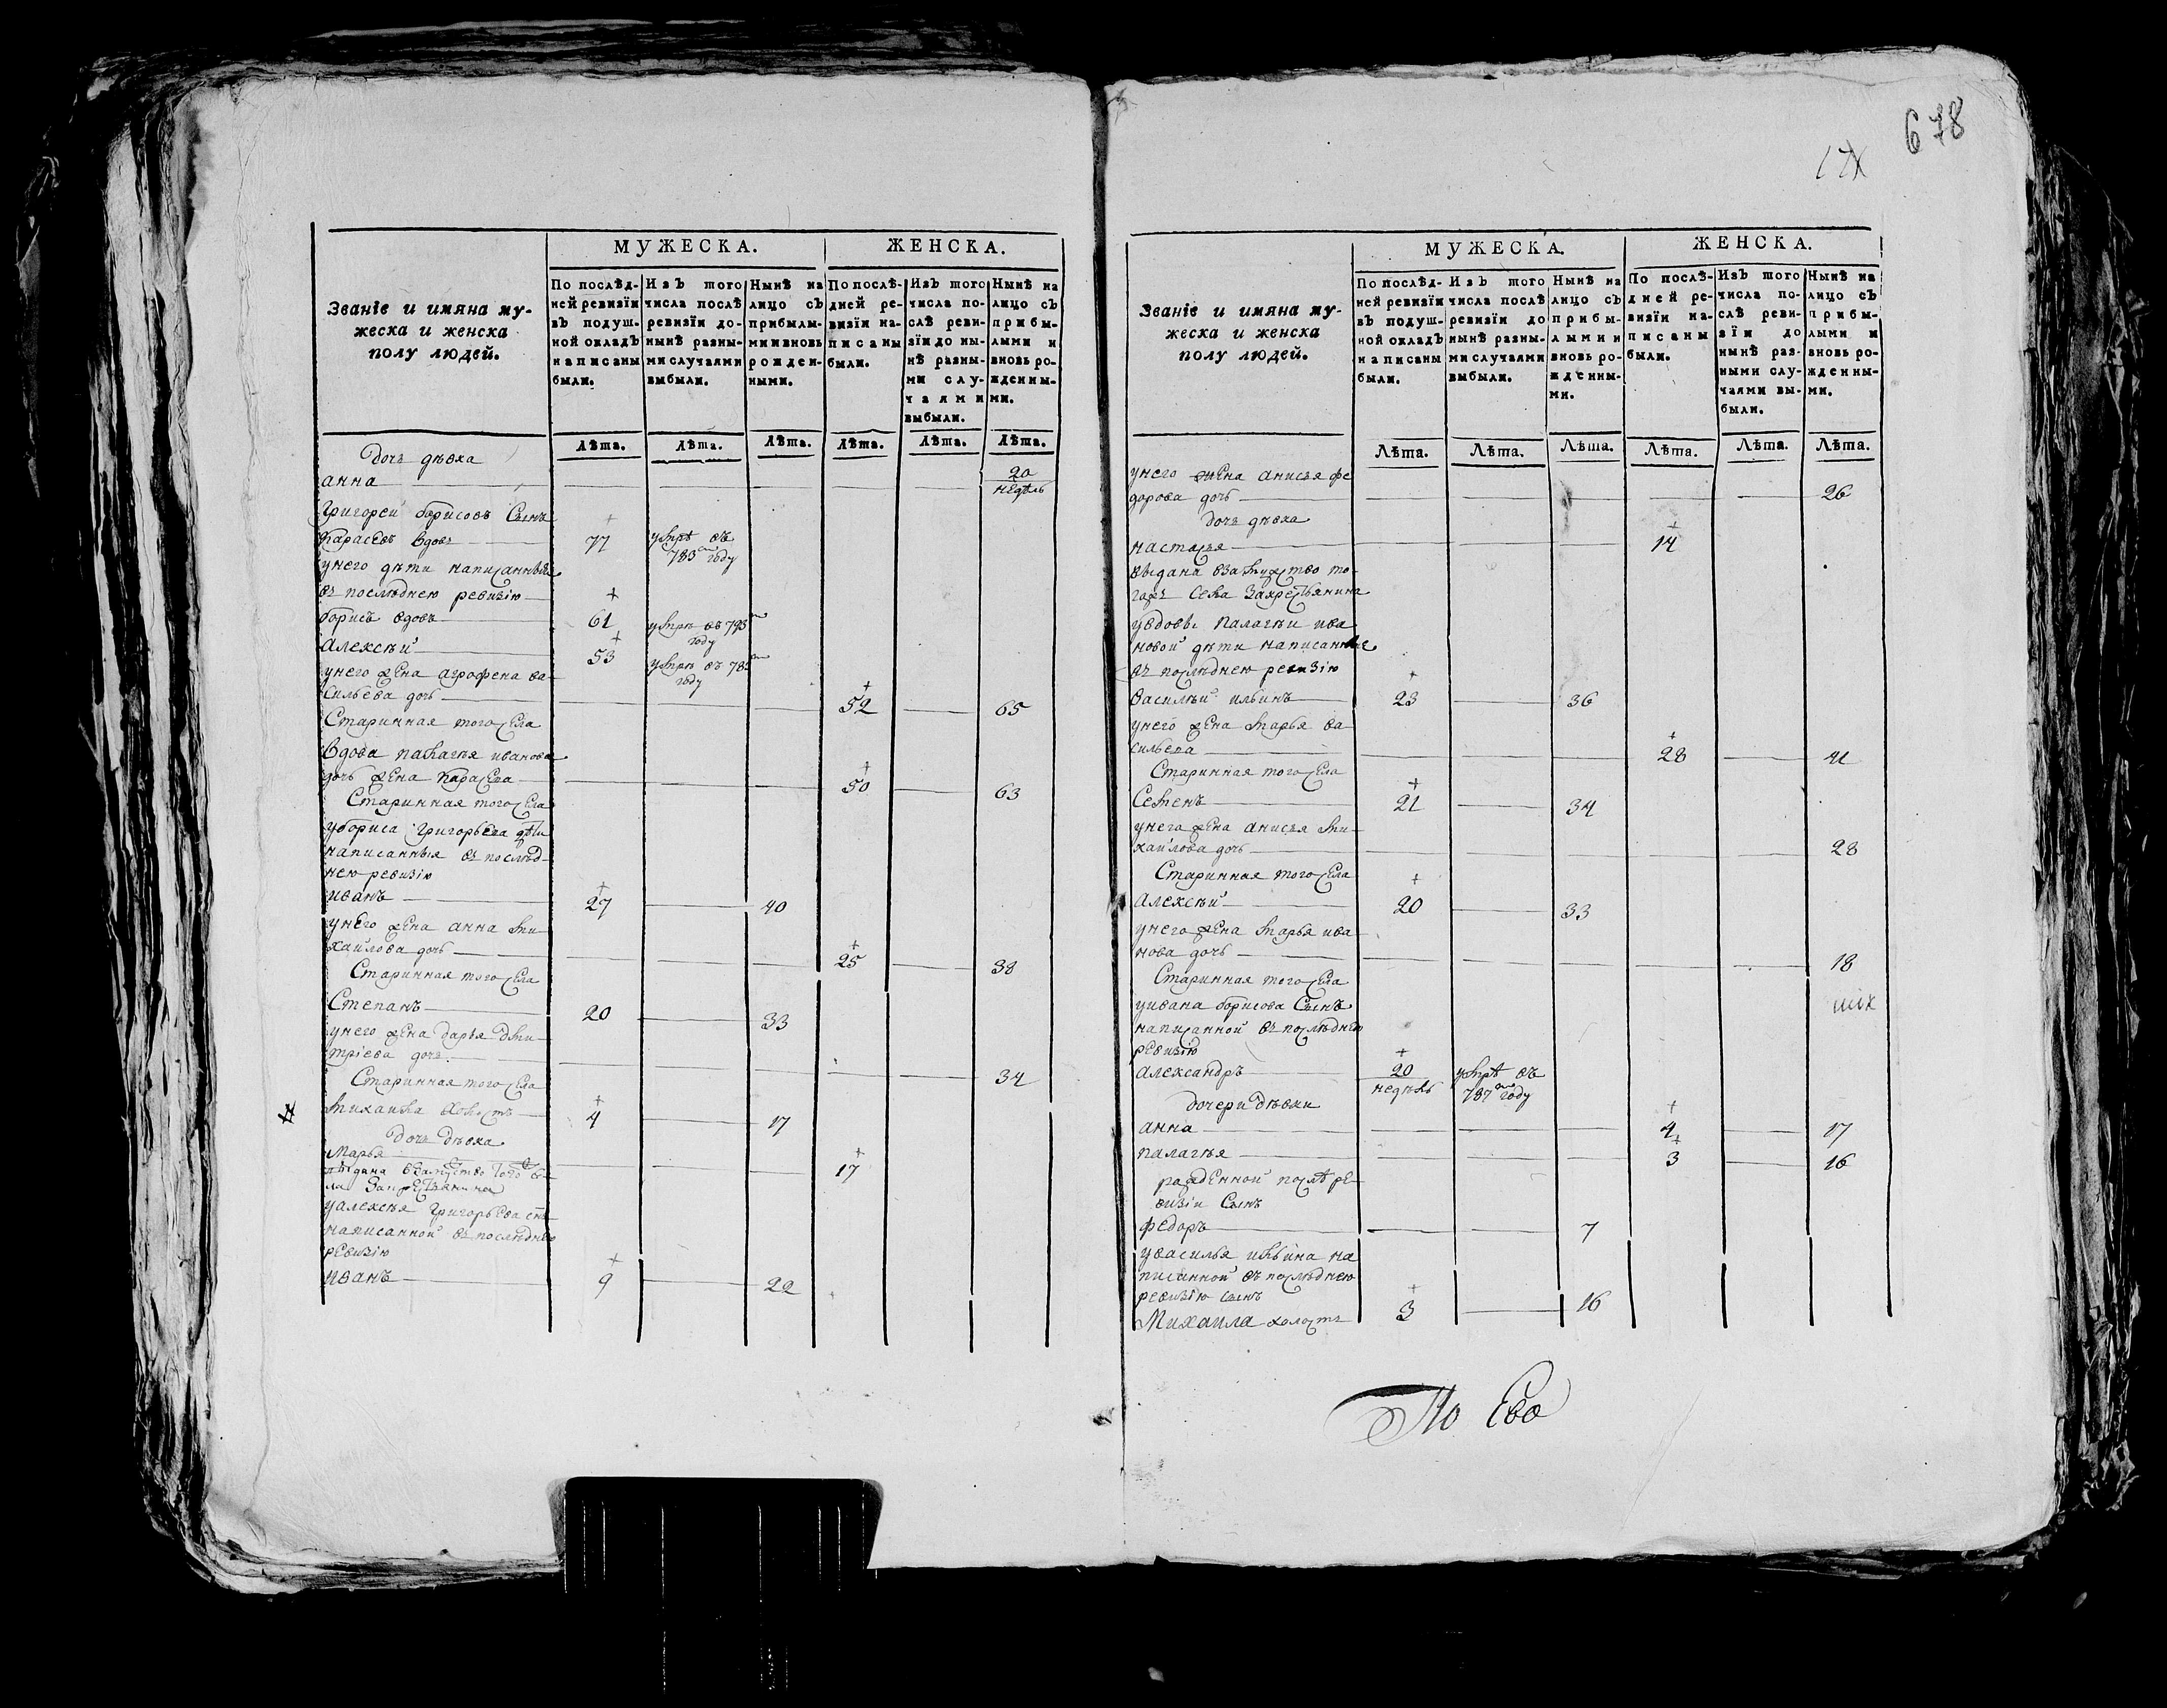 678
МУЖЕСКА. ЖЕНСКА.
Званїе и имяна му-
жеска и женска
полу людей.
По послѣд-
ней ревизїи
въ подуш-
ной окладъ
написаны
были.
Изъ того
числа послѣ
ревизїи до-
нынѣ разны-
ми случаями
выбыли.
Нынѣ на
лицо съ
прибылы-
ми и вновь
рожден-
ными.
По послѣ-
дней ре-
визїи на-
писаны
были.
Изъ того
числа по-
слѣ реви-
зїи до ны-
нѣ разны-
ми слу-
чаями
выбыли.
Нынѣ на
лицо съ
прибы-
лыми и
вновь ро-
жденны-
ми.
Лѣта. Лѣта. Лѣта. Лѣта. Лѣта. Лѣта.
дочь дѣвка
анна 20 недѣль
Григорей борисовъ Сынъ
Карасевъ вдовъ 77 умрѣ въ 783 году
унего дѣти написанныя
въ послѣднею ревизію
борисъ вдовъ 61 умрѣ въ 793 году
Алексѣй 53 умрѣ въ 785 году
унего жена агрофена ва-
сильева дочь 52 65
Старинная того села
вдова палагѣя иванова
дочь жена Карасева 50 63
Старинная того села
убориса григорьева дѣти
написанныя въ послѣд-
нею ревизію
иванъ 27 40
унего жена анна ми-
хайлова дочь 25 38
Старинная того села
Степанъ 20 33
унего жена дарья дми-
тріева дочь
34
Старинная того села
михайла холостъ 4 17
дочь дѣвка
Марья 17
выдана взамуство того се-
ла за крестьянина
уалексѣя григорьева снъ
написанной въ послѣднею
ревизію
иванъ 9 22
МУЖЕСКА. ЖЕНСКА.
Званїе и имяна му-
жеска и женска
полу людей.
По послѣд-
ней ревизїи
въ подуш-
ной окладъ
написаны
были.
Изъ того
числа послѣ
ревизїи до
нынѣ разны-
ми случаями
выбыли.
Нынѣ на
лицо съ
прибы-
лыми и
вновь ро-
жденны-
ми.
По послѣ-
дней ре-
визїи на-
писаны
были.
Изъ того
числа по-
слѣ реви-
зїи до
нынѣ раз-
ными слу-
чаями вы-
были.
Нынѣ на
лицо съ
прибы-
лыми и
вновь ро-
жденны-
ми.
Лѣта. Лѣта. Лѣта. Лѣта. Лѣта. Лѣта.
унего жена анисья фе
дорова дочь 26
дочь дѣвка
настасья 14
выдана взамужство то-
гожъ села закрестьянина
увдовы палагѣи ива
новой дѣти написанные
въ послѣднею ревизію
василѣй ильинъ 23 36
унего жена марья ва-
сильева 28 41
Старинная того села
Семенъ 21 34
унего жена анисья ми-
хайлова дочь 28
Старинная того села
Алексѣй 20 33
унего жена марья ива
нова дочь 18
Старинная того села
уивана борисова Сынъ
написанной въ послѣднею
ревизію
александръ 20 недѣль умрѣ въ 787 году
дочери дѣвки
анна 4 17
палагѣя 3 16
рожденной послѣ ре-
визіи Сынъ
федоръ 7
увасилья ильина на
писанной въ послѣднею
ревизію сынъ
Михаила холостъ 3 16
По Ево